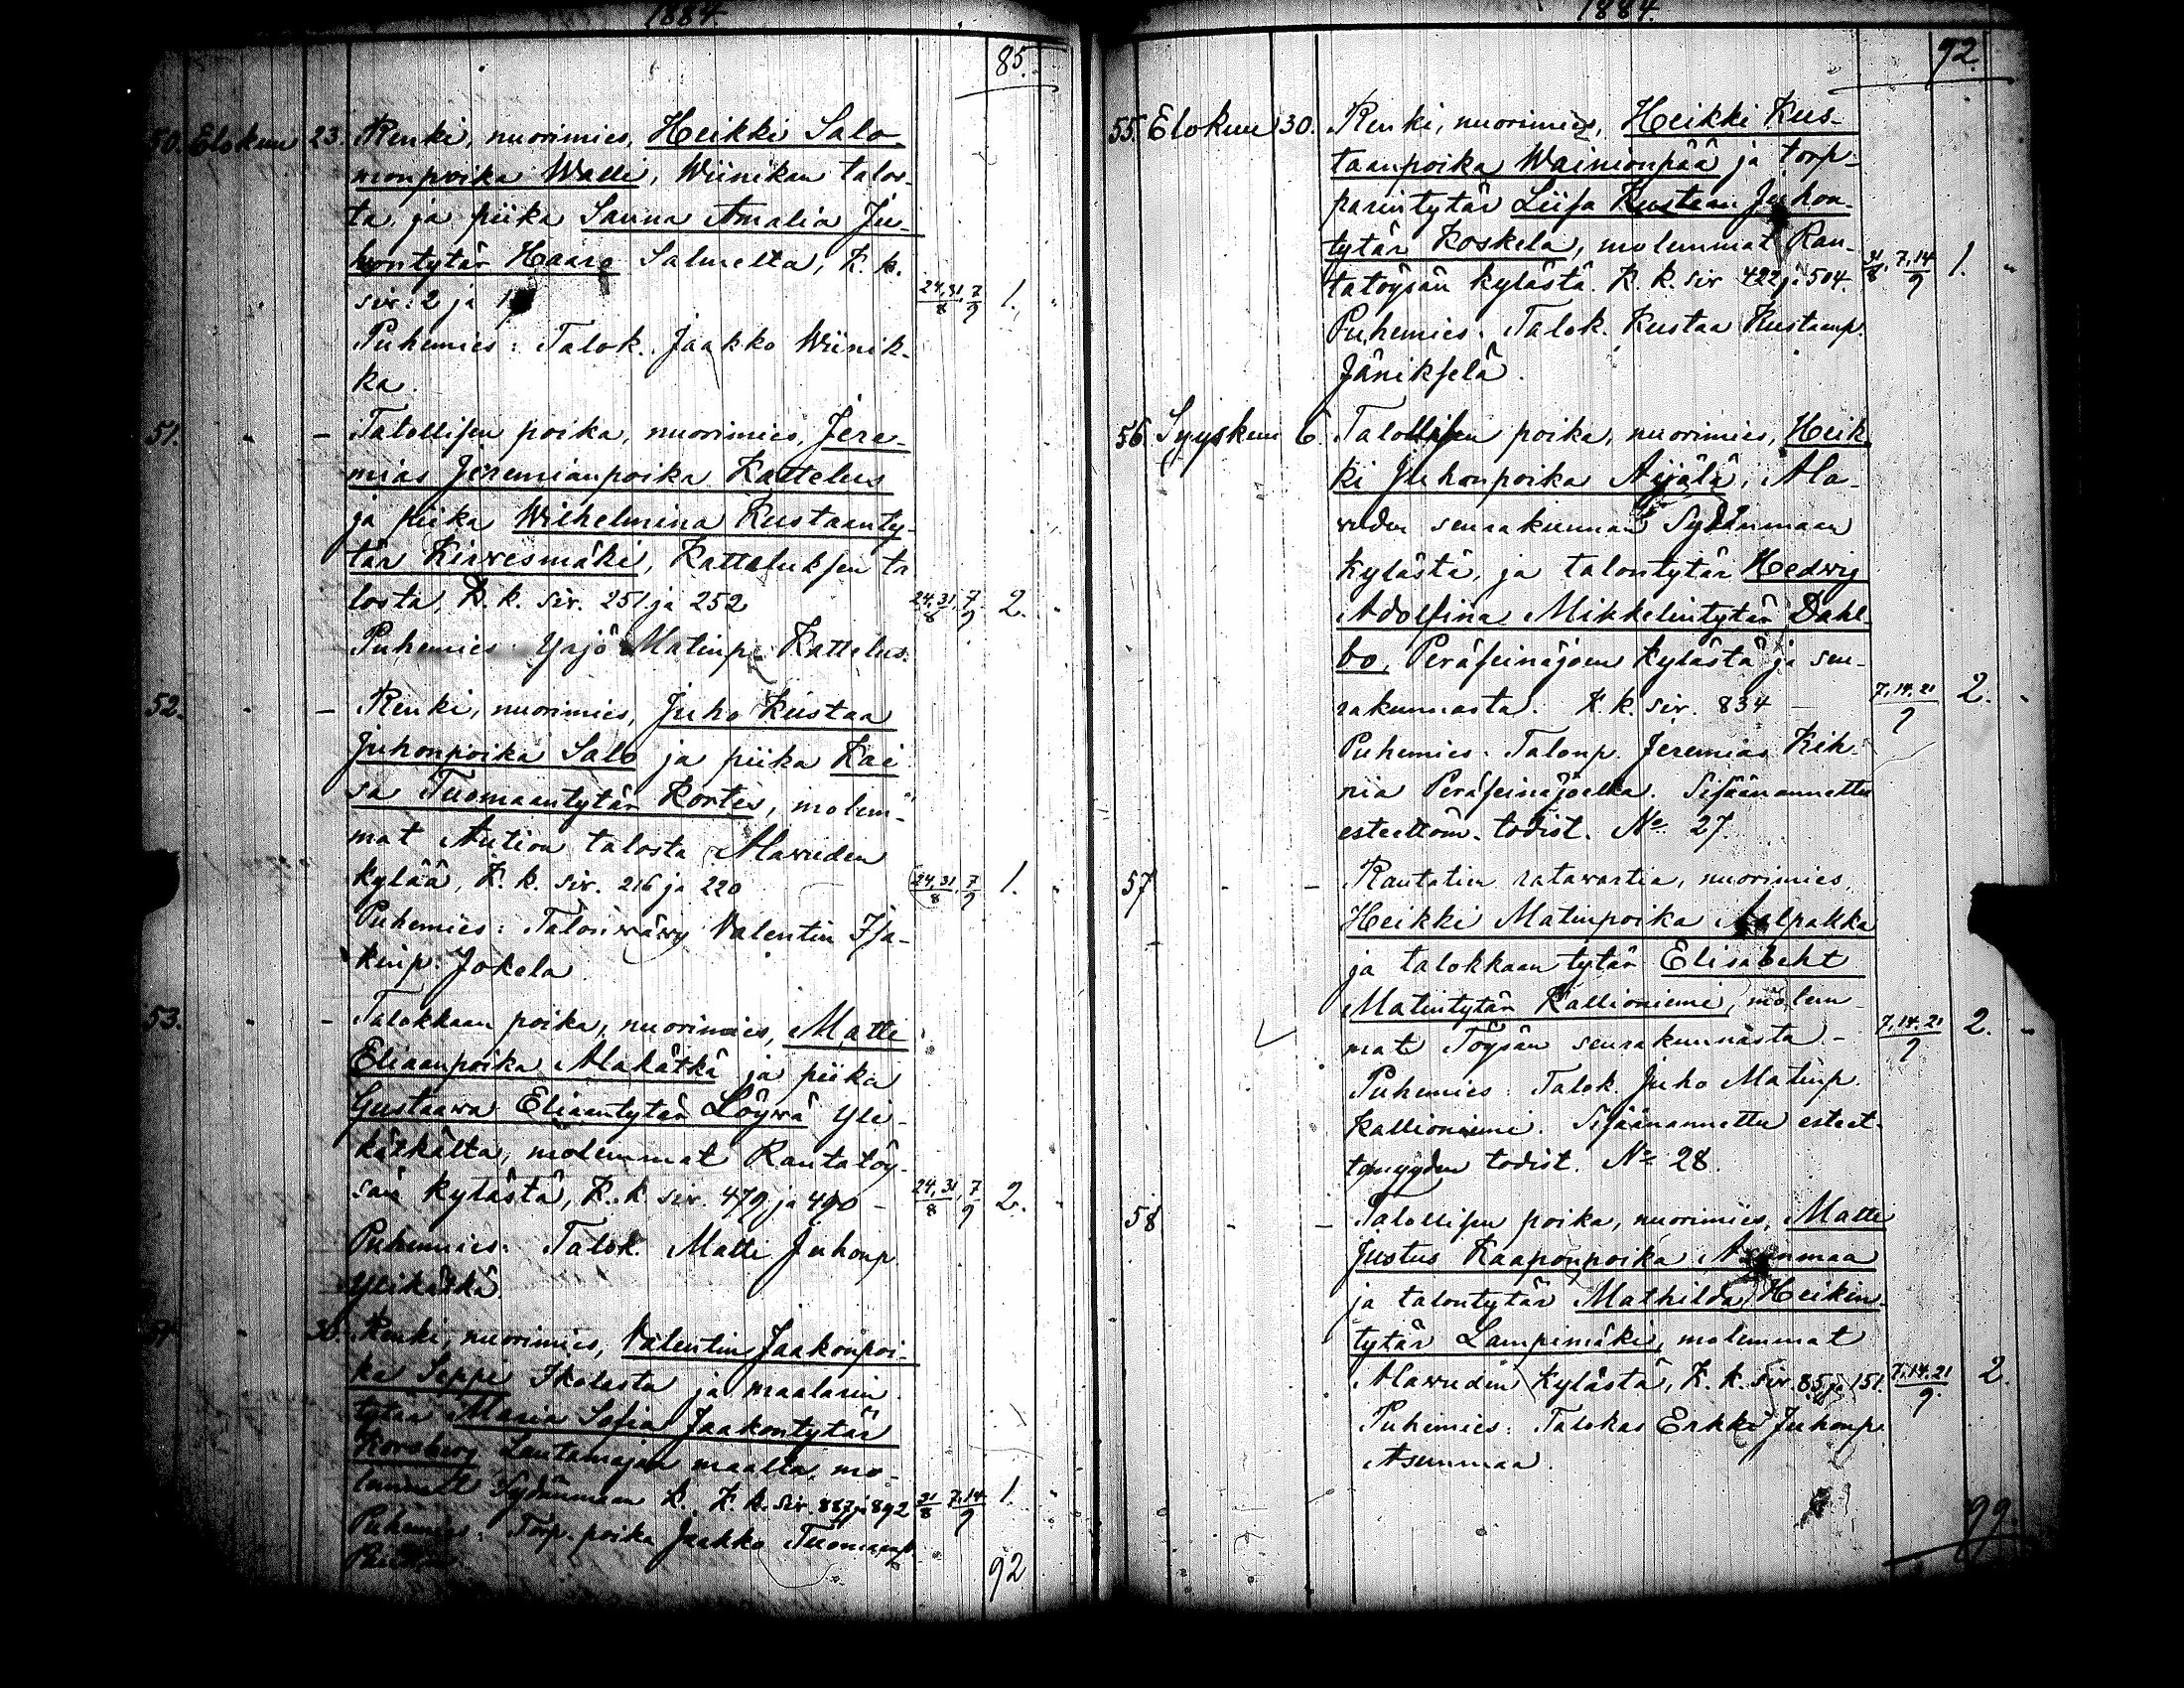 1884.
85.
50. Elokuu 23. Renki, nuorimies, Heikki Salo-
monpoika Walli, Wiinikan talos-
ta, ja piika Sanna Amalia Ju-
hontytär Haare Salmelta, K. k.
siv. 2 ja 24,31/8, 7/9 1.
Puhemies: Talok. Jaakko Wiinik-
ka.
51. " - Talollisen poika, nuorimies, Jere-
mias Jeremianpoika Kattelus
ja piika Wilhelmina Kustaanty-
tär Kirwesmäki, Katteluksen ta
losta, K. k. siv. 251 ja 252 24,31/8, 7/9 2.
Puhemies Yrjö Matinp. Kattelus.
52. " - Renki, nuorimies, Juho Kustaa
Juhonpoika Salo ja piika Kai
sa Tuomaantytär Kortes, molem-
mat Aution talosta Alawuden
kylää, K. k. siv. 216 ja 220 24,31/8, 7/9 1.
Puhemies: Talonwäwy Valentin Isa-
kinp. Jokela
53. " - Talokkaan poika, nuorimies, Matti
Eliaanpoika Alakätkä ja piika
Gustaawa Eliaantytär Löywä Yli-
kätkältä, molemmat Rantatöy-
sän kylästä, K. k. siv. 479 ja 490 - 24,31/8, 7/9 2.
Puhemies: Talok. Matti Juhonp
Ylikätkä
54. " 30. Renki, nuorimies, Valentin Jaakonpoi-
ka Seppi Ikolasta ja maalarin
tytär Maria Sofia Jaakontytär
Korsberg Lautamajan maalta, mo-
lemmat Sydänmaan k. K. k. siv. 887 ja 892 31/8 7,14/9 1.
Puhemies: Torp. poika Jaakko Tuomaanp.
92
1884.
92.
55. Elokuu 30. Renki, nuorimies, Heikki Kus-
taanpoika Wainionpää ja torp-
parintytär Liisa Kustaan Juhon-
tytär Koskela, molemmat Ran-
tatöysän kylästä. K. k. siv 422 ja 504. 31/8, 7,14/9 1. "
Puhemies. Talok. Kustaa Kustaanp.
Jänikselä.
56. Syyskuu 6. Talollisen poika, nuorimies, Heik
ki Juhonpoika Äijälä, Ala-
wuden seurakunnan Sydänmaan
kylästä, ja talontytär Hedwig
Adolfina Mikkelintytär Dahl-
bo, Peräseinäjoen kylästä ja seu-
rakunnasta. K. k. siv. 834 - 7,14,21/9 2.
Puhemies: Talonp. Jeremias Kih-
niä Peräseinäjoelta. Sisäänannettu
esteettöm. todist. No 27.
57 - - Rautatien ratawartia, nuorimies,
Heikki Matinpoika Aalpakka
ja talokkaan tytär Elisabeht
Matintytär Kallioniemi, molem-
mat Töysän seurakunnasta - 7,14,21/9 2. -
Puhemies: Talok. Juho Matinp.
Kallioniemi. Sisäänannettu esteet-
tömyyden todist. No 28.
58 - - Talollisen poika, nuorimies, Matti
Justus Kaaponpoika Asunmaa
ja talontytär Mathilda Heikin-
tytär Lampimäki, molemmat
Alawuden kylästä, K. k. siv. 85 ja 151. 7,14,21/9 2.
Puhemies: Talokas Erkki Juhonp.
Asunmaa.
99.